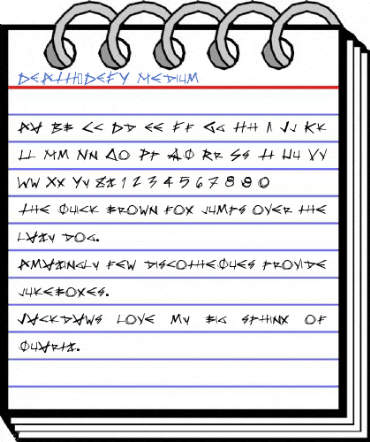 DEATH▯DEFY MEDIUM
AA BB CC DD EE FF GG HH II JJ KK
LL MM NN OO PP QQ RR SS TT UU VV
WW XX YY ZZ 1 2 3 4 5 6 7 8 9 0
THE QUICK BROWN FOX JUMPS OVER THE
LAZY DOG.
AMAZINGLY FEW DISCOTHEQUES PROVIDE
JUKEBOXES.
JACKDAWS LOVE MY BIG SPHINX OF
QUARTZ.